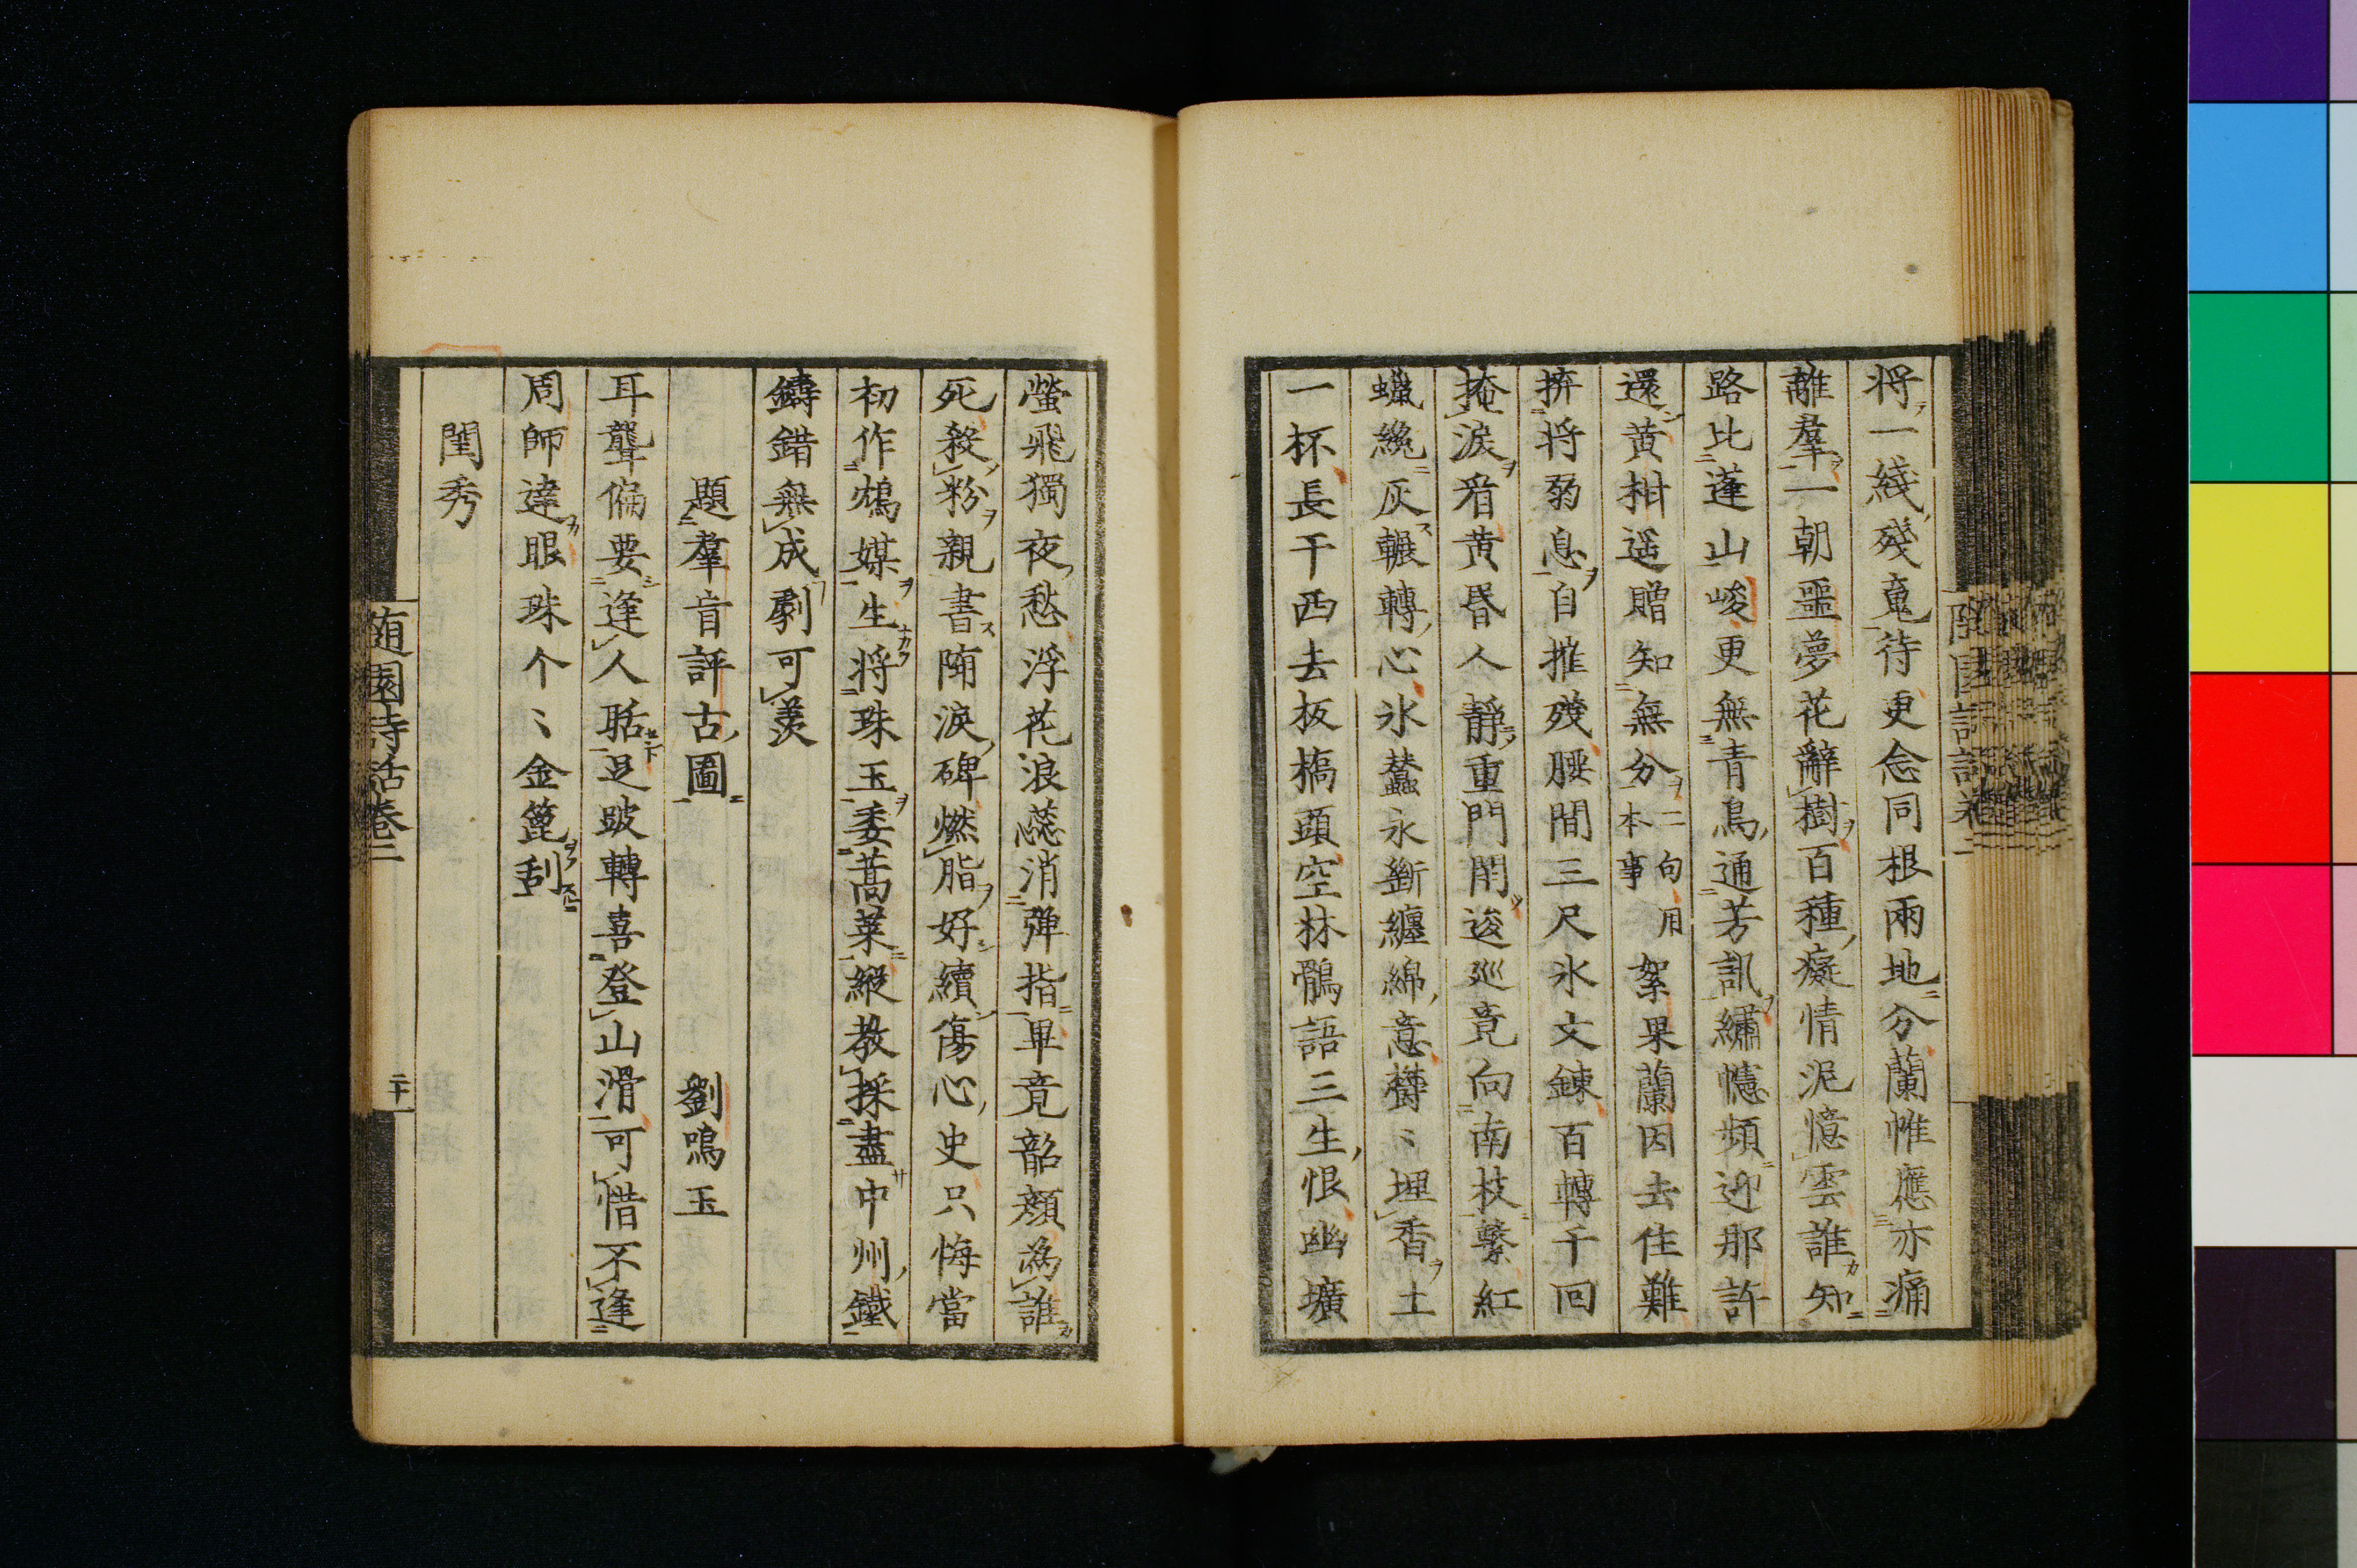 将一綫殘䰟待更念同根兩地分蘭帷應亦痛
離羣一朝噩夢花辭樹百種癡情泥憶雲誰知
路比蓬山峻更無青鳥通芳訊繡幰頻迎那許
還黄柑遥贈知無分二句用本事絮果蘭因去住難
拚将弱息自摧殘腰間三尺氷文鍊百轉千回
掩淚看黄昏人靜重門閉逡巡竟向南枝繫紅
蠟纔灰輾轉心氷蠶永斷纏綿意欝〻埋香土
一抔長干西去板橋頭空林鶻語三生恨幽壙
螢飛獨夜愁浮花浪蕊消彈指畢竟韶顔為誰
死殺粉親書隋淚碑燃脂好續傷心史只悔當
初作鴆媒生将珠玉委蒿萊縱教採盡中州鐵
鑄錯無成劇可羨
題羣盲評古圖　劉鳴玉
耳聾偏要逢人聒足跛轉喜登山滑可惜不逢
周師達眼珠个〻金箆刮
閨秀
随園詩話卷三
二十